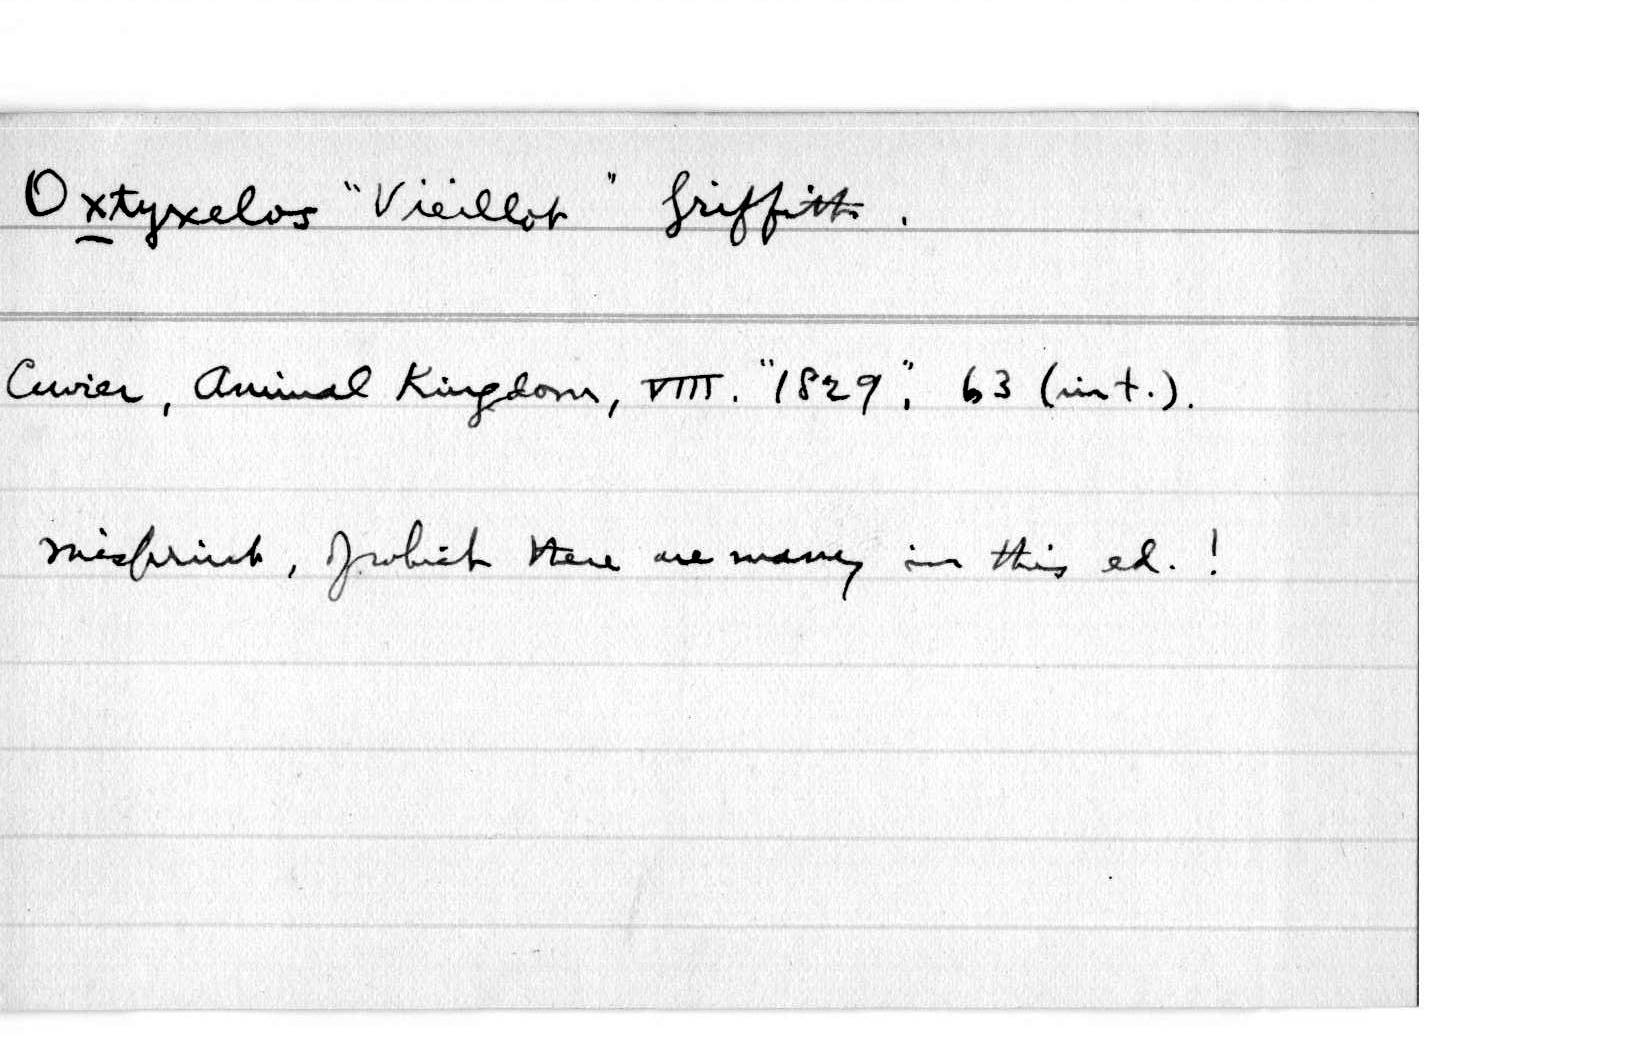 Oxtyxelos "Vieillot" Griffith.
Cuvier, Animal Kingdom, VIII. "1829", 63 (in t.).
misprint, of which there are many in this ed.!